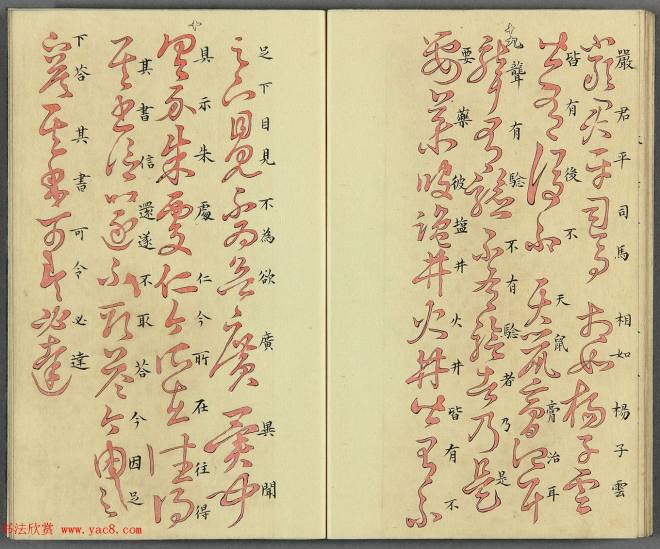 嚴君平司馬相如楊子雲
皆有後不 天鼠膏治耳
聾有驗不有驗者乃是
要藥 彼塩井火井皆有不
足下目見不為欲廣異聞
具示朱處仁今所在往得
其書信還遂不取答今因足
下答其書可令必達
书法欣赏 www.yac8.com